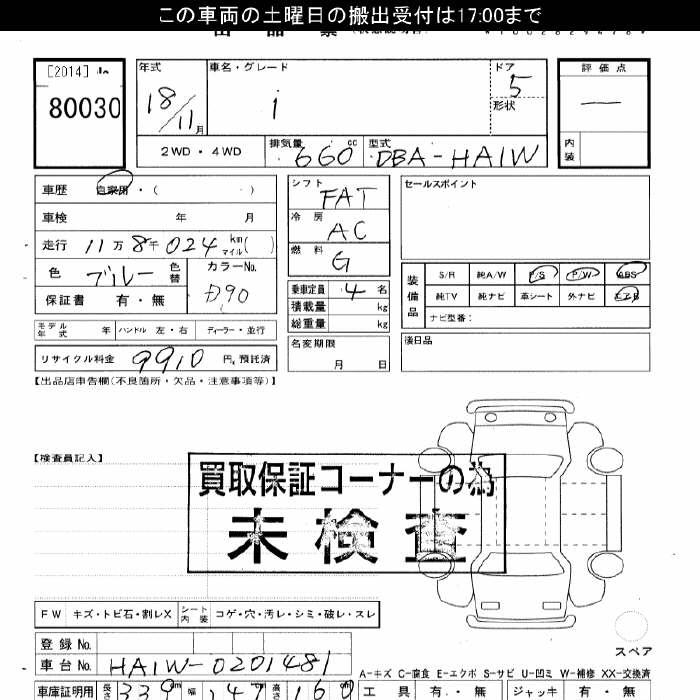 この車両の土曜日の搬出受付は17:00まで
[2014]
80030
年式 車名・グレード ドア 5 評価点
18/11月 i 形状 —
2WD・4WD 排気量 660cc 型式 DBA-HA1W 内装
車歴 自家用・( )
車検 年 月
走行 11万8千024km マイル( )
色 ブルー 色替 カラーNo. D90
保証書 有・無
モデル年式 年 ハンドル 左・右 ディーラー・並行
リサイクル料金 9910 円、預託済
シフト FAT
冷房 AC
燃料 G
乗車定員 4名
積載量 kg
総重量 kg
名変期限 月 日
セールスポイント
装備品 S/R 純A/W P/S P/W ABS
純TV 純ナビ 革シート 外ナビ エアB
ナビ型番:
後日品
【出品店申告欄(不良箇所・欠品・注意事項等)】
【検査員記入】
買取保証コーナーの為
未検査
FW キズ・トビ石・割レX シート内装 コゲ・穴・汚レ・シミ・破レ・スレ
スペア
登録No.
車台No. HA1W-0201481
A-キズ C-腐食 E-エクボ S-サビ U-凹ミ W-補修 XX-交換済
車庫証明用 長さ 339 幅 147 高さ 160 工具 有・無 ジャッキ 有・無